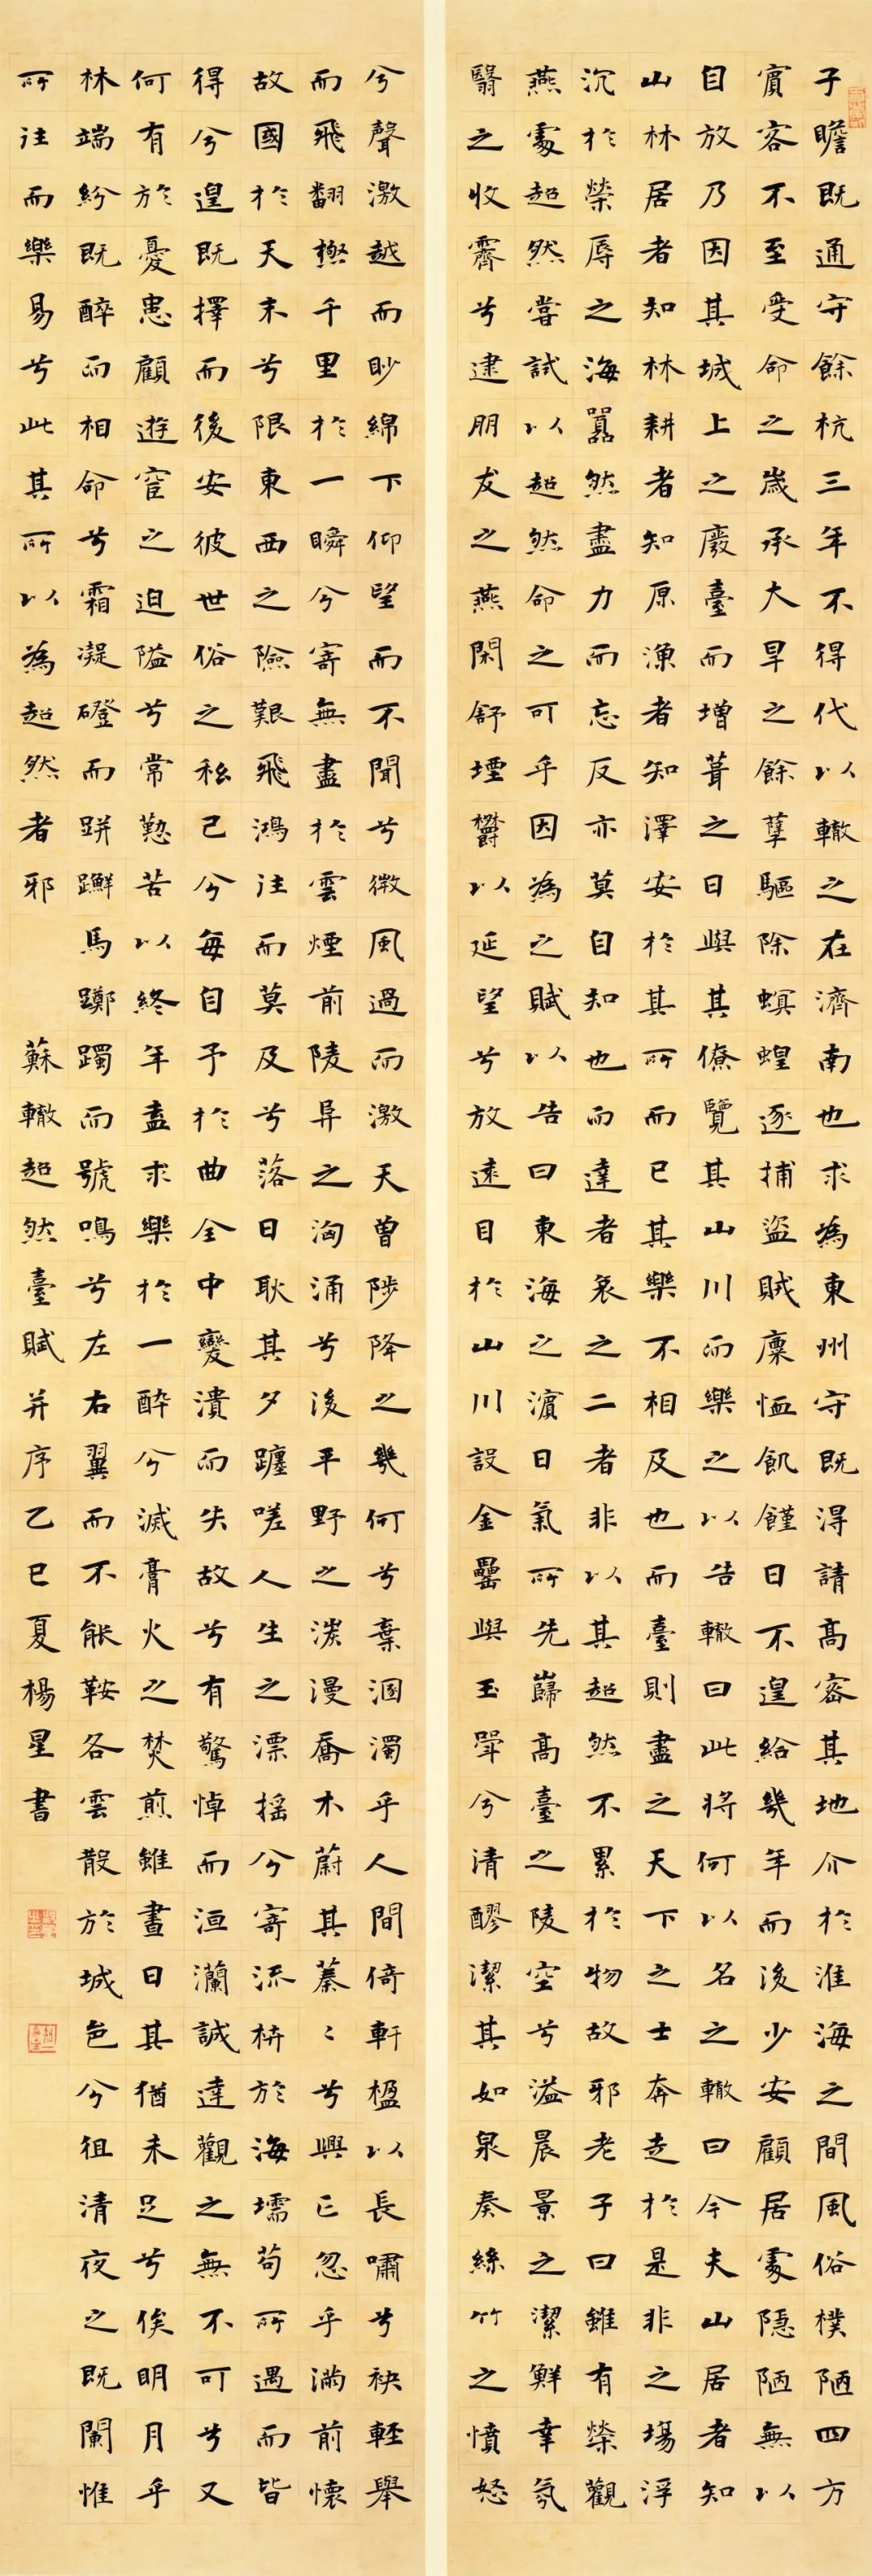 子瞻既通守餘杭三年不得代以轍之在濟南也求為東州守既得請高密其地介於淮海之間風俗樸陋四方
賓客不至受命之歲承大旱之餘孽驅除螟蝗逐捕盜賊廩恤飢饉日不遑給幾年而後少安顧居處隱陋無以
自放乃因其城上之廢臺而增葺之日與其僚覽其山川而樂之以告轍曰此將何以名之轍曰今夫山居者知
山林居者知林耕者知原漁者知澤安於其所而已其樂不相及也而臺則盡之天下之士奔走於是非之場浮
沉於榮辱之海囂然盡力而忘反亦莫自知也而達者哀之二者非以其超然不累於物故邪老子曰雖有榮觀
燕處超然嘗試以超然命之可乎因為之賦以告曰東海之濱日氣所先巋高臺之陵空兮溢晨景之潔鮮幸氛
翳之收霽兮逮朋友之燕閑舒堙鬱以延望兮放遠目於山川設金罍與玉斝兮清醪潔其如泉奏絲竹之憤怒
兮聲激越而眇綿下仰望而不聞兮微風過而激天曾陟降之幾何兮棄溷濁乎人間倚軒楹以長嘯兮袂輕舉
而飛翻極千里於一瞬兮寄無盡於雲煙前陵阜之洶涌兮後平野之湠漫喬木蔚其蓁〻兮興亡忽乎滿前懷
故國於天末兮限東西之險艱飛鴻往而莫及兮落日耿其夕躔嗟人生之漂搖兮寄流枿於海壖苟所遇而皆
得兮遑既擇而後安彼世俗之私己兮每自予於曲全中變潰而失故兮有驚悼而洹瀾誠達觀之無不可兮又
何有於憂患顧遊宦之迫隘兮常勤苦以終年盍求樂於一醉兮滅膏火之焚煎雖晝日其猶未足兮俟明月乎
林端紛既醉而相命兮霜凝磴而跰𨇤馬躑躅而號鳴兮左右翼而不能鞍各雲散於城邑兮徂清夜之既闌惟
所往而樂易兮此其所以為超然者邪 蘇轍超然臺賦并序乙巳夏楊星書